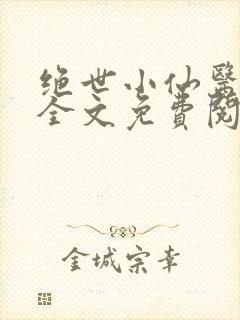 绝世小仙医
全文免费阅
金城宗幸